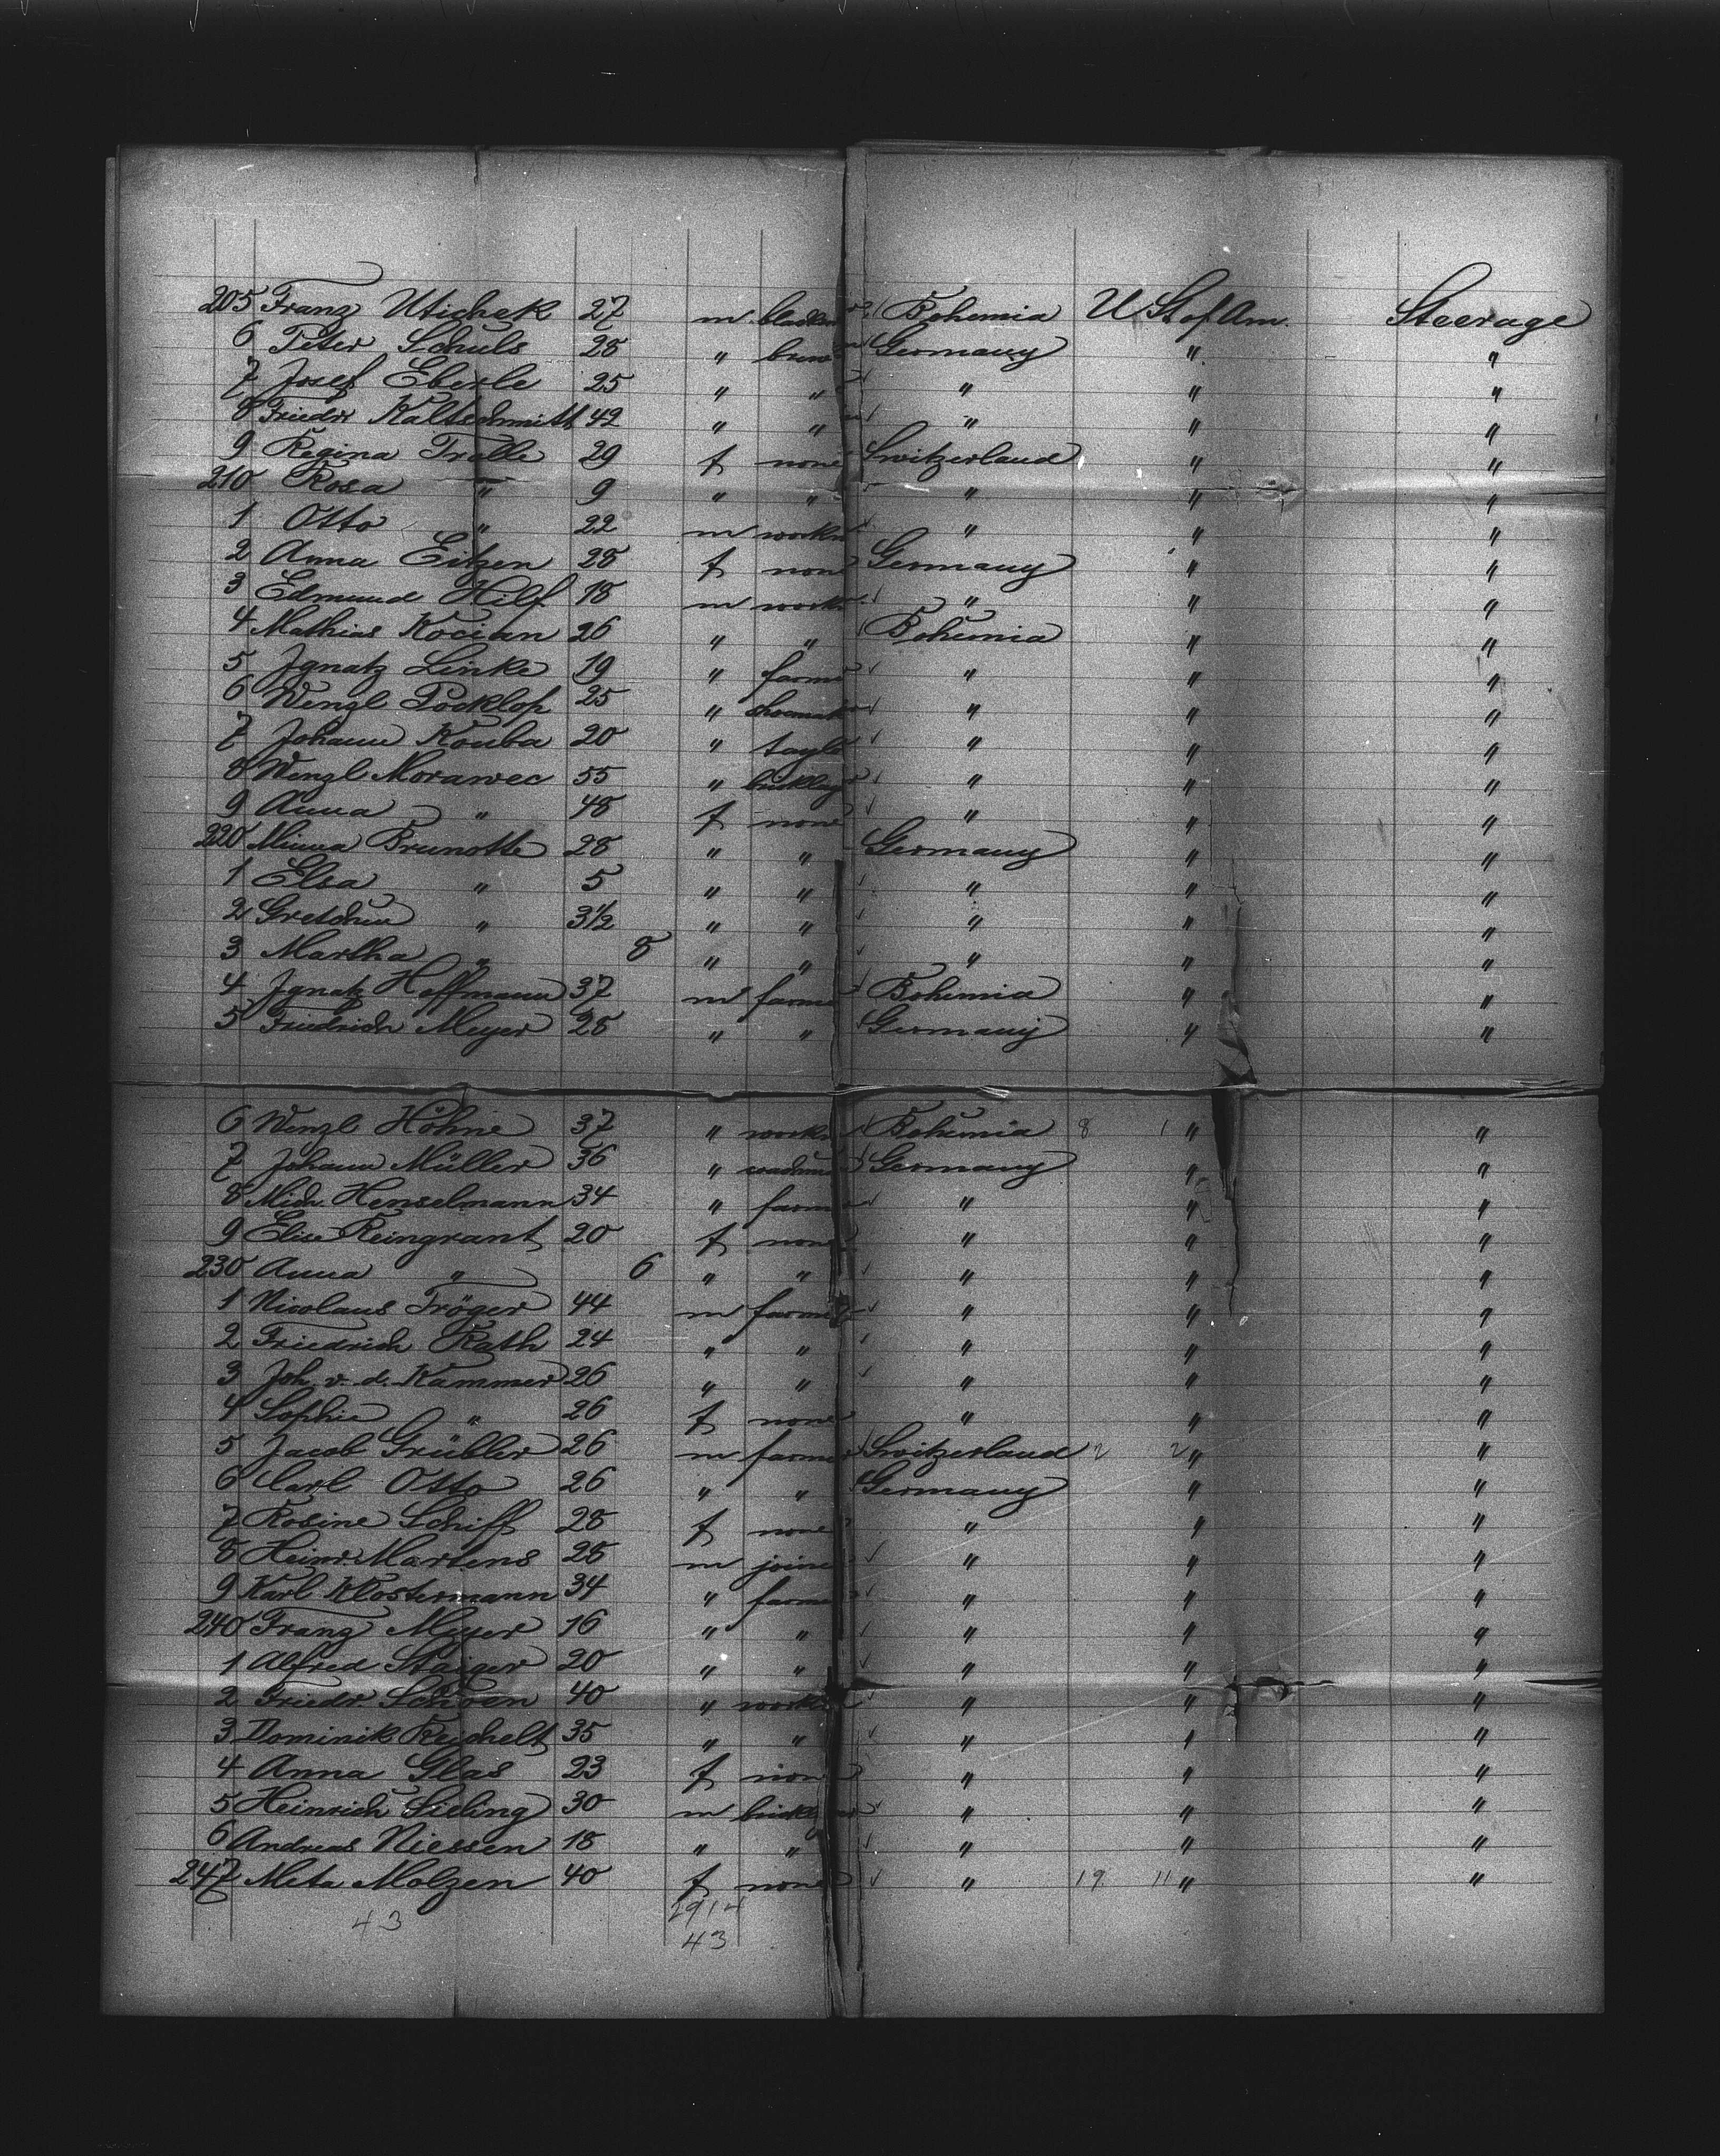 205 Franz Utichek 27 m Bohemia U St of Am. Steerage
6 Peter Schuls 28 " Germany " "
7 Josef Eberle 25 " " " " "
8 Friedr Kaltschmitt 42 " " " " "
9 Regina Trolle 29 f none Switzerland " "
210 Rosa " 9 " " " " "
1 Otto " 22 m " " "
2 Anna Eitzen 28 f none Germany " "
3 Edmund Hilf 18 m " " "
4 Mathias Kocian 26 " " Bohemia " "
5 Ignatz Linke 19 " farmer " " "
6 Wenzl Pocklop 25 " " " "
7 Johann Kouba 20 " taylor " " "
8 Wenzl Morawec 55 " " " "
9 Anna " 48 f none " " "
220 Minna Brunotte 28 " " Germany " "
1 Elsa " 5 " " " " "
2 Gretchen " 3 1/2 " " " " "
3 Martha " 8 " " " " "
4 Ignatz Hoffmann 37 m farmer Bohemia " "
5 Friedrich Meyer 28 " " Germany " "
6 Wenzl Höhne 37 " Bohemia 8 1 " "
7 Johann Müller 36 " Germany " "
8 Mich. Henselmann 34 " farmer " " "
9 Elise Reingrant 20 f none " " "
230 Anna " 6 " " " " "
1 Nicolaus Tröger 44 m farmer " " "
2 Friedrich Rath 24 " " " " "
3 Joh. v. d. Kammer 26 " " " " "
4 Sophie " 26 f none " " "
5 Jacob Grübler 26 m farmer Switzerland 2 2 " "
6 Carl Otto 26 " " Germany " "
7 Rosine Schiff 28 f none " " "
8 Heinr. Martens 28 m joiner " " "
9 Karl Klostermann 34 " farmer " " "
240 Franz Meyer 16 " " " " "
1 Alfred Staiger 20 " " " " "
2 Friedr. Schoen 40 " " " "
3 Dominik Reichelt 35 " " " " "
4 Anna Glas 23 f none " " "
5 Heinrich Sieling 30 m " " "
6 Andreas Niessen 18 " " " " "
247 Meta Molzen 40 f none " 19 11 " "
43 2914
43